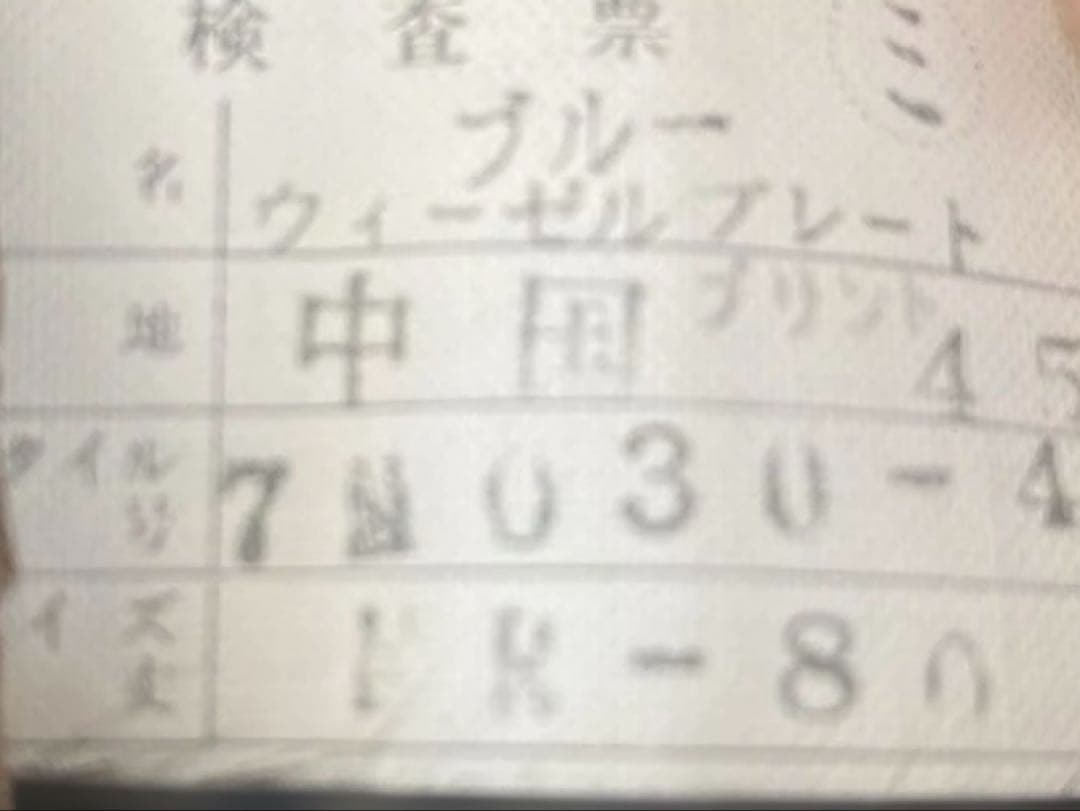 検査票
ブルー
名 ウィーゼルプレート
プリント
地 中国 45
タイル 7 030-4
イズ -8